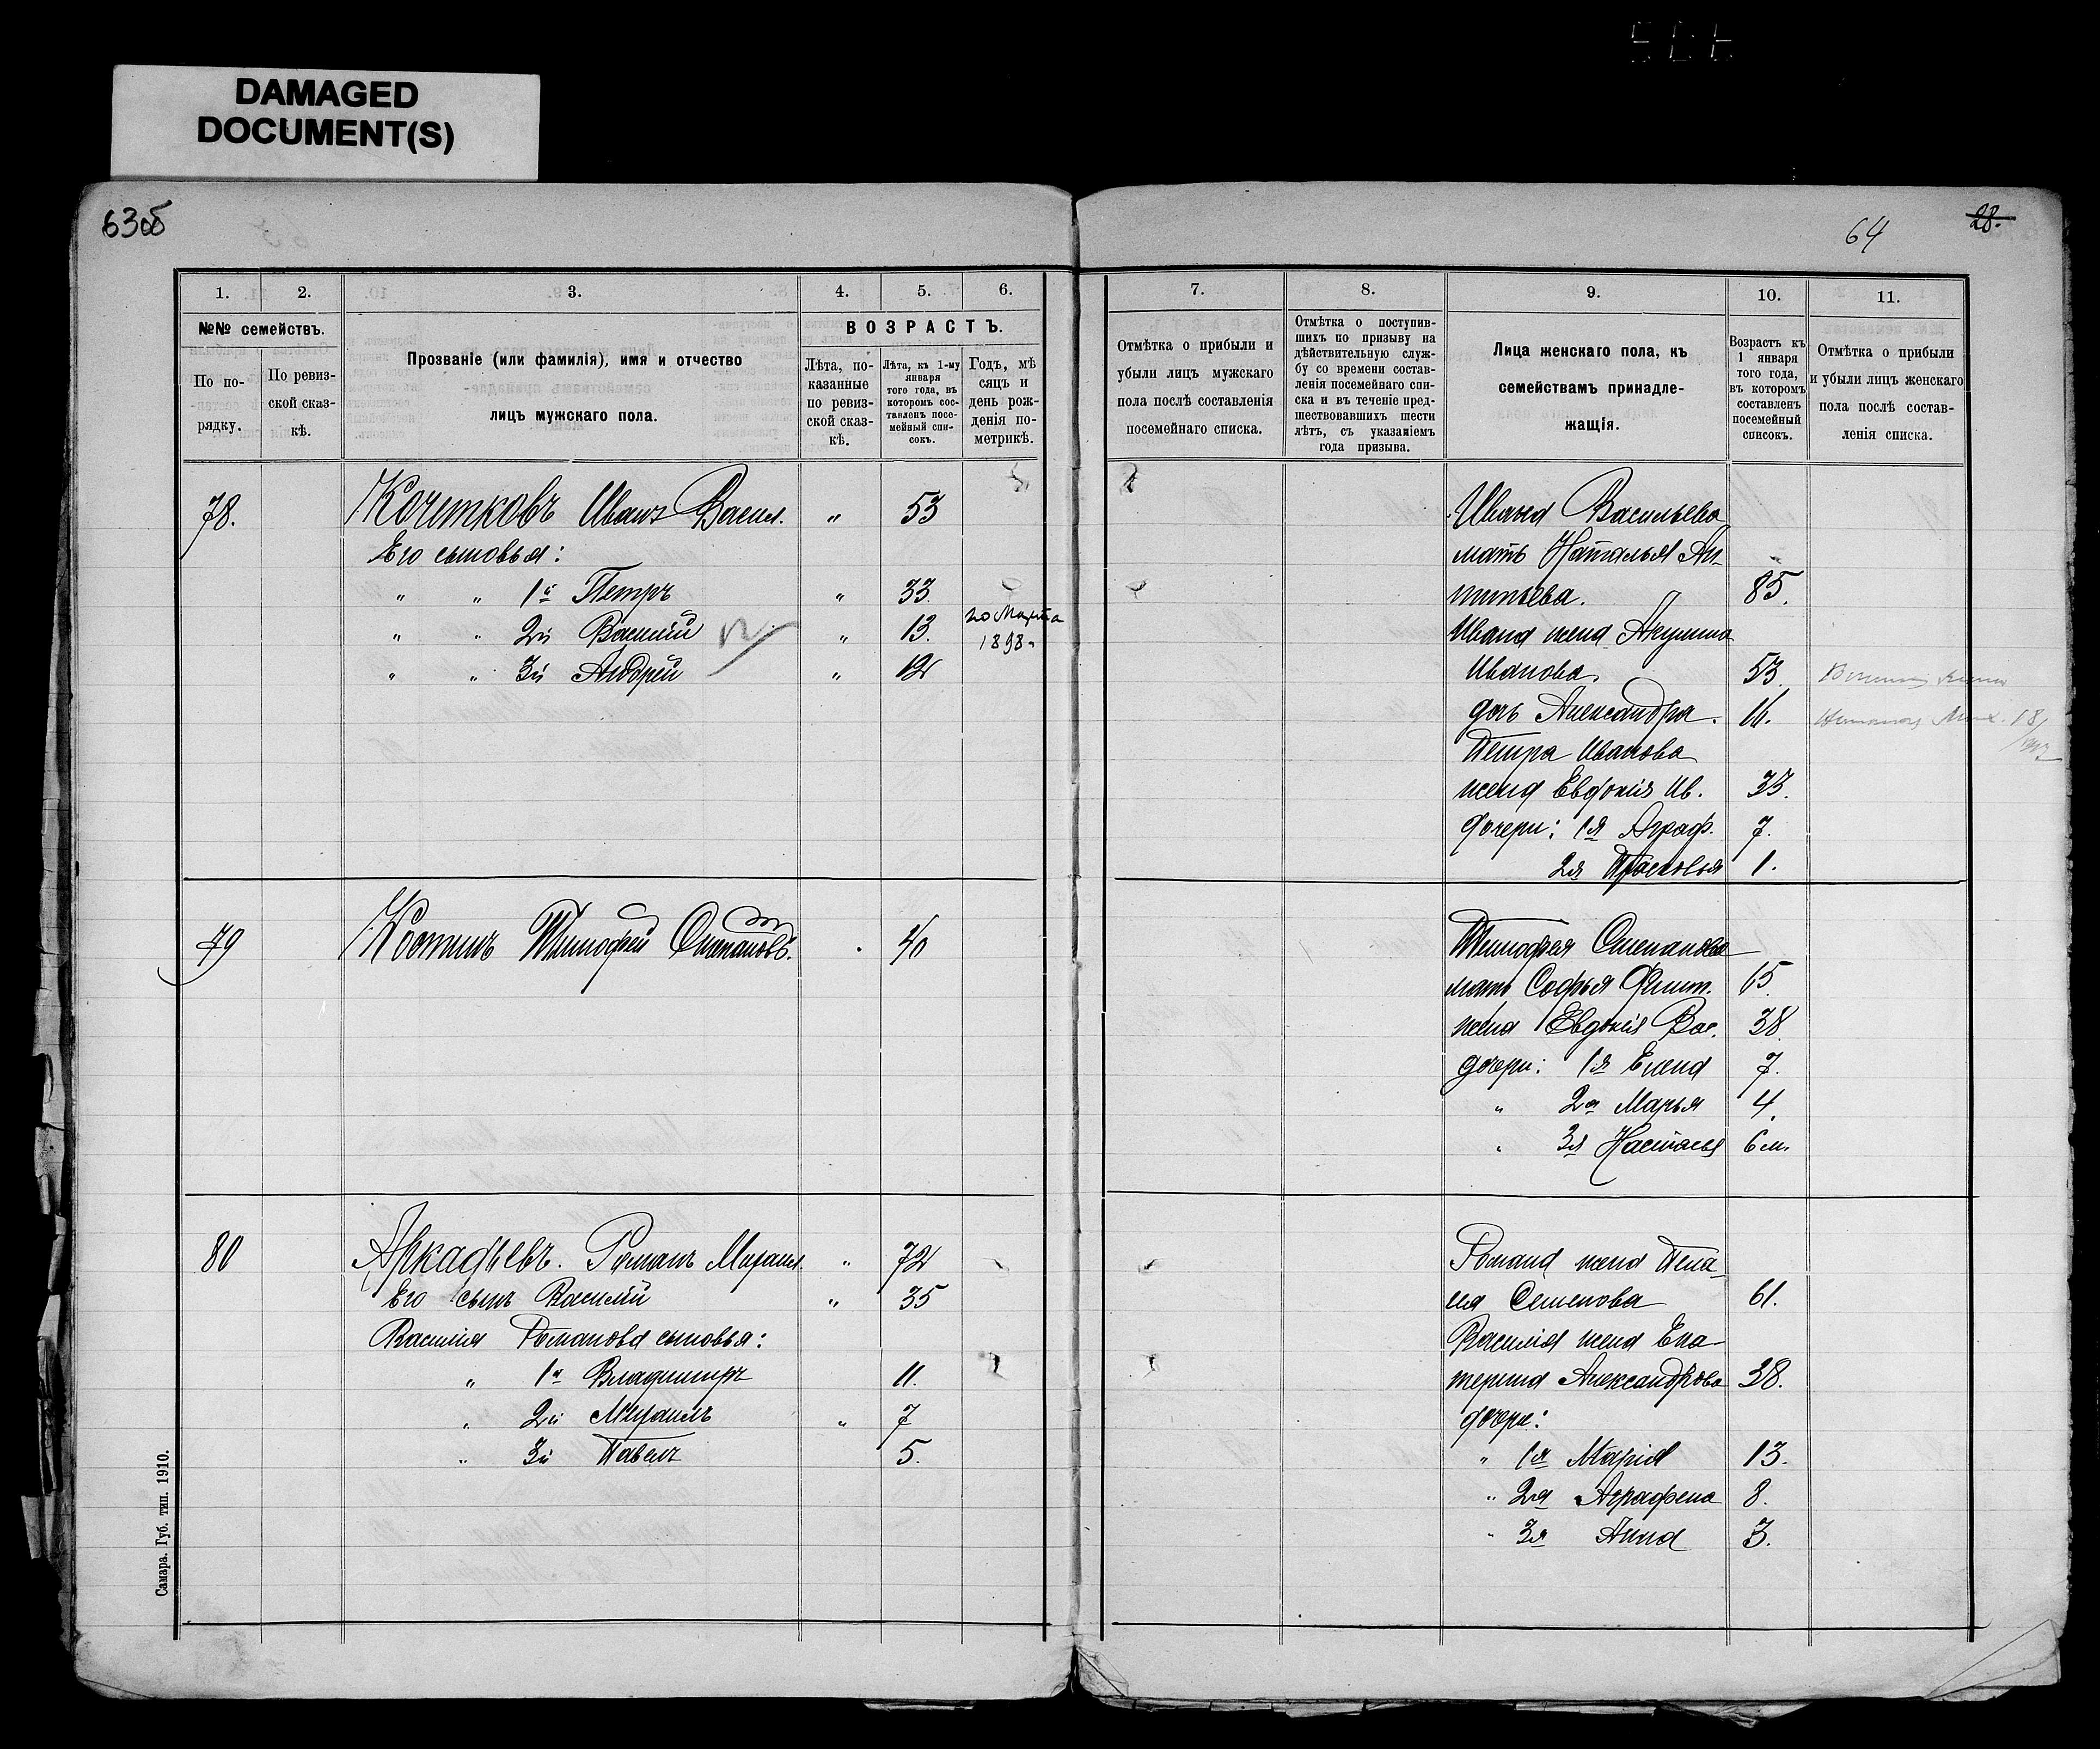 DAMAGED
DOCUMENT(S)
63об
64
28.
1.
2.
3.
4.
5.
6.
№№ семействъ.
По по-
рядку.
По ревиз-
ской сказ-
кѣ.
Прозваніе (или фамилія), имя и отчество
лицъ мужскаго пола.
ВОЗРАСТЪ.
Лѣта, по-
казанные
по ревиз-
ской сказ-
кѣ.
Лѣта, къ 1-му
января
того года, въ
которомъ сос-
тавленъ посе-
мейный спи-
сокъ.
Годъ, мѣ
сяцъ и
день рож-
денія по-
метрикѣ.
78.
Кочетковъ Иванъ Васил. " 53
Его сыновья:
" " 1й Петръ " 33.
" " 2й Василій " 13. 20 Марта
1898
" " 3й Андрей " 12
79
Костинъ Тимофей Степановъ. 40
80
Аркадьевъ. Романъ Михаил " 72
Его сынъ Василій " 35
Василія Романова сыновья:
" 1й Владимиръ 11.
" 2й Михаилъ " 7
" 3й Павелъ 5.
Самара. Губ. тип. 1910.
7.
8.
9.
10.
11.
Отмѣтка о прибыли и
убыли лицъ мужскаго
пола послѣ составленія
посемейнаго списка.
Отмѣтка о поступив-
шихъ по призыву на
дѣйствительную служ-
бу со времени состав-
ленія посемейнаго спи-
ска и въ теченіе пред-
шествовавшихъ шести
лѣтъ, съ указаніемъ
года призыва.
Лица женскаго пола, къ
семействамъ принадле-
жащія.
Возрастъ къ
1 января
того года,
въ которомъ
составленъ
посемейный
списокъ.
Отмѣтка о прибыли
и убыли лицъ женскаго
пола послѣ состав-
ленія списка.
Ивана Васильева
мать Наталья Ан-
типьева. 85.
Ивана жена Акулина
Иванова. 53.
дочь Александра. 16.
Петра Иванова
жена Евдокія Ив. 33.
дочери: 1я Аграф. 7.
2я Прасковья 1.
Тимофея Степанова
мать Софья Филип. 65
жена Евдокія Вас. 38
дочери: 1я Елена 7.
" 2я Марья 4.
" 3я Настасья 6 м.
Романа жена Пела-
гея Семенова 61.
Василія жена Ека-
терина Александрова 38.
дочери:
" 1я Марія 13.
" 2я Аграфена 8.
" 3я Анна 3.